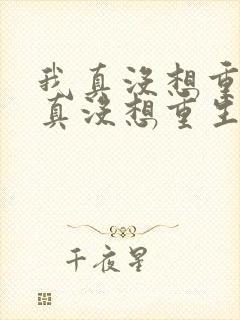 我真没想重
真没想重生
千夜星